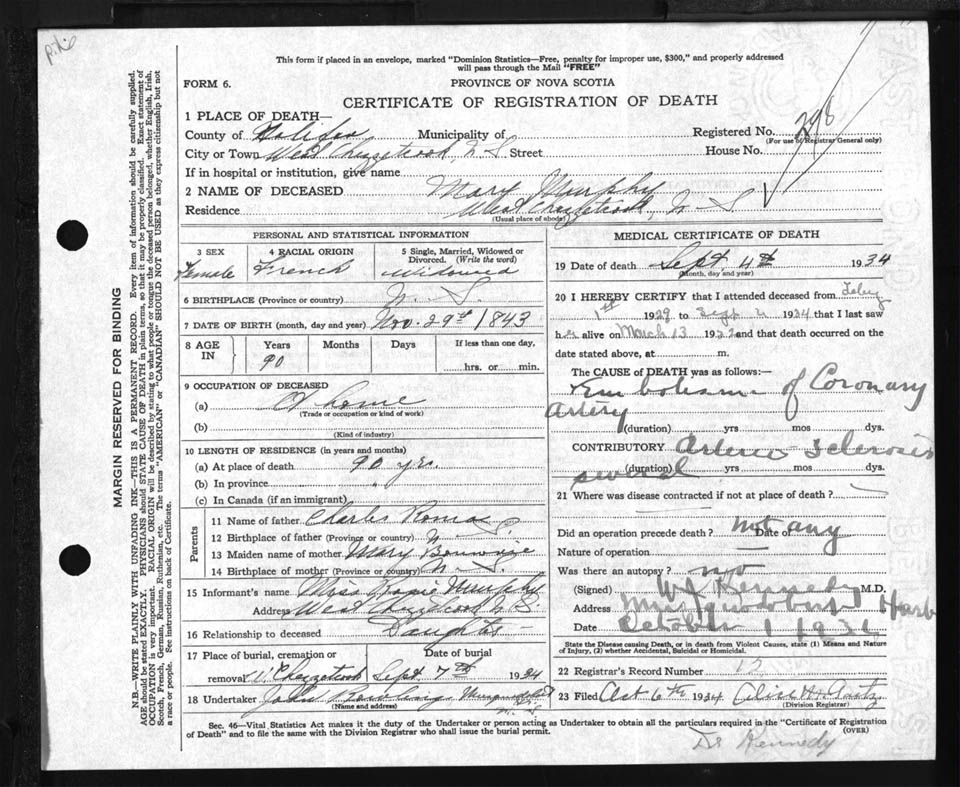 This form if placed in an envelope, marked "Dominion Statistics—Free, penalty for improper use, $300," and properly addressed
will pass through the Mail "FREE"
FORM 6.
PROVINCE OF NOVA SCOTIA
CERTIFICATE OF REGISTRATION OF DEATH
MARGIN RESERVED FOR BINDING
N.B.—WRITE PLAINLY WITH UNFADING INK—THIS IS A PERMANENT RECORD. Every item of information should be carefully supplied.
AGE should be stated EXACTLY. PHYSICIANS should STATE CAUSE OF DEATH in plain terms, so that it may be properly classified. Exact statement of
OCCUPATION is very important. RACIAL ORIGIN will be described by stating to what people or tongue the deceased person belonged, whether English, Irish,
Scotch, French, German, Russian, Ruthenian, etc. The terms "AMERICAN" or "CANADIAN" SHOULD NOT BE USED as they express citizenship but not
a race or people. See instructions on back of Certificate.
1 PLACE OF DEATH—
County of Halifax Municipality of Registered No. 298
(For use of Registrar General only)
City or Town West Chezzetcook, N S Street House No.
If in hospital or institution, give name
2 NAME OF DECEASED Mary Murphy
Residence West Chezzetcook N-S
(Usual place of abode)
PERSONAL AND STATISTICAL INFORMATION
3 SEX 4 RACIAL ORIGIN 5 Single, Married, Widowed or Divorced. (Write the word)
Female French Widowed
6 BIRTHPLACE (Province or country) N. S.
7 DATE OF BIRTH (month, day and year) Nov. 29th 1843
8 AGE IN Years Months Days If less than one day,
90 hrs. or min.
9 OCCUPATION OF DECEASED
(a) At home
(Trade or occupation or kind of work)
(b)
(Kind of industry)
10 LENGTH OF RESIDENCE (in years and months)
(a) At place of death 90 yrs.
(b) In province "
(c) In Canada (if an immigrant)
Parents
11 Name of father Charles Roma
12 Birthplace of father (Province or country) N. S.
13 Maiden name of mother Mary
14 Birthplace of mother (Province or country) N. S.
15 Informant's name Miss Murphy
Address West Chezzetcook N. S.
16 Relationship to deceased Daughter
17 Place of burial, cremation or removal Date of burial
W. Chezzetcook Sept. 7th 1934
18 Undertaker John
(Name and address)
MEDICAL CERTIFICATE OF DEATH
19 Date of death Sept. 4th 1934
(Month, day and year)
20 I HEREBY CERTIFY that I attended deceased from
1st 1929 to Sept 4 1934 that I last saw
her alive on March 13 19 and that death occurred on the
date stated above, at m.
The CAUSE of DEATH was as follows:—
Embolism of Coronary
Artery
(duration) yrs mos dys.
CONTRIBUTORY Arterio Sclerosis
several
(duration) yrs mos dys.
21 Where was disease contracted if not at place of death?
Did an operation precede death? not any Date of
Nature of operation —
Was there an autopsy? no
(Signed) W Kennedy M.D.
Address Musquodoboit Harb
Date October 1 193
State the Disease causing Death, or in death from Violent Causes, state (1) Means and Nature
of Injury, (2) whether Accidental, Suicidal or Homicidal.
22 Registrar's Record Number 12
23 Filed Oct 6th 1934 Alice
(Division Registrar)
Sec. 46—Vital Statistics Act makes it the duty of the Undertaker or person acting as Undertaker to obtain all the particulars required in the "Certificate of Registration
of Death" and to file the same with the Division Registrar who shall issue the burial permit. (OVER)
Dr Kennedy